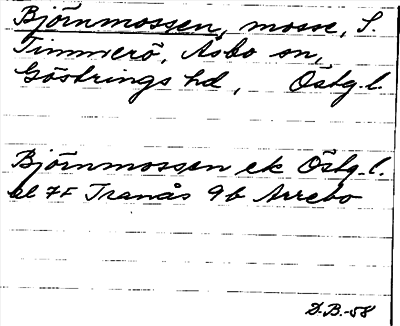 Björnmossen, mosse, S.
Timmerö, Åsbo sn,
Göstrings hd, Östg. l.
Björnmossen ek Östg. l.
bl 7F Tranås 9b Arrebo
D.B.-58